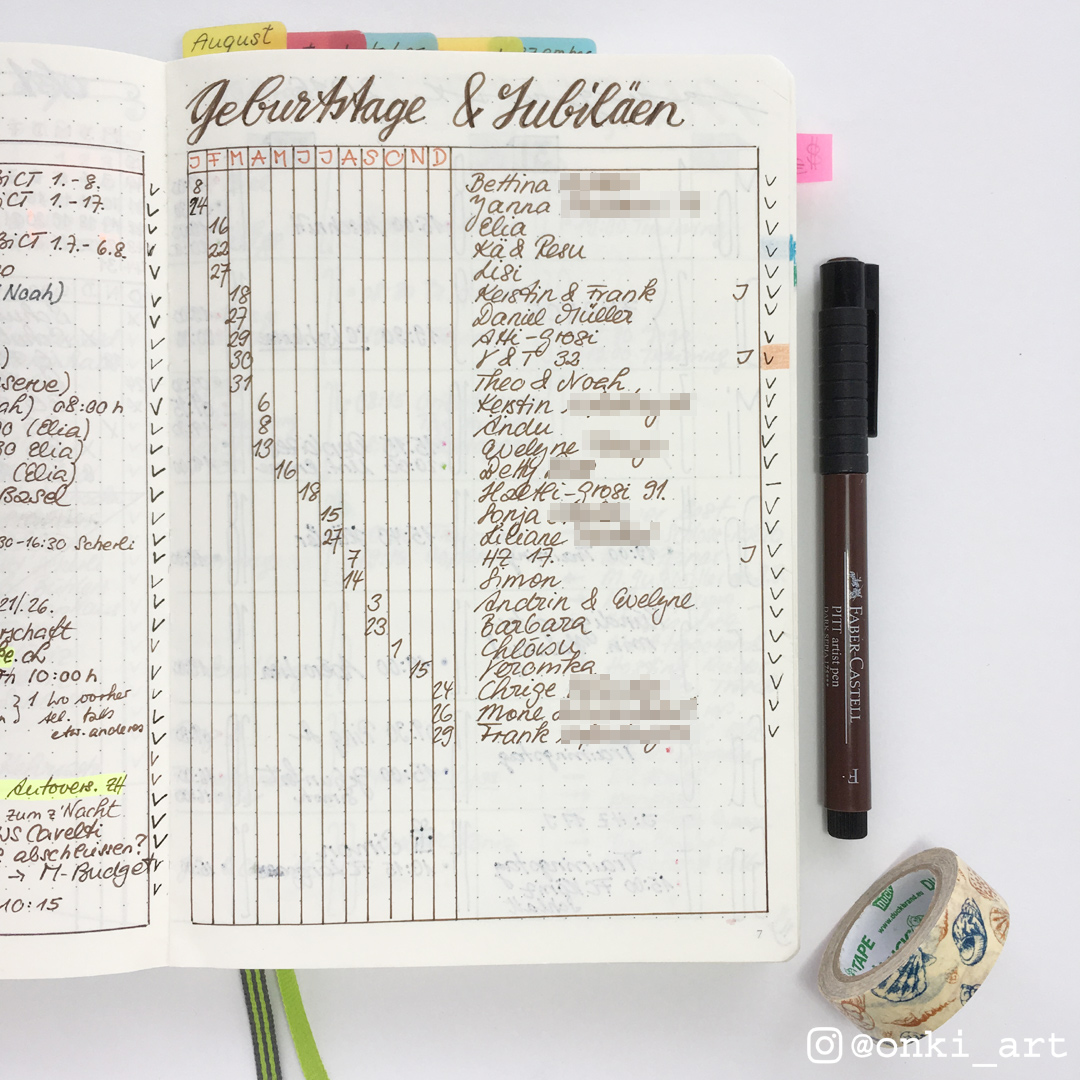 August
Geburtstage & Jubiläen
J F M A M J J A S O N D
8 Bettina
24 Yanna
16 Elia
22 Kä & Resu
27 Lisi
18 Kerstin & Frank J
27 Daniel Müller
29 Atti-Grosi
30 V & T 32 J
31 Theo & Noah
6 Kerstin
8 Ändu
13 Evelyne
16 Betty
18 Hätti-Grosi 91.
15 Sonja
27 Liliane
7 HZ 17. J
14 Simon
3 Andrin & Evelyne
23 Barbara
1 Chlöisu
15 Veronika
24 Chrige
26 Mone
29 Frank
7
BiCT 1.-8.
BiCT 1.-17.
BiCT 1.7.-6.8.
Noah)
)
serve)
ah) 08:00 h
00 (Elia)
30 Elia)
(Elia)
Basel
30-16:30 Scherli
21/26.
rschaft
e.ch
Th 10:00 h
1 Wo vorher
tel. falls
etw. anderes
Autovers. 24
zum z'Nacht
WS Cavelti
abschliessen?
→ M-Budget
10:15
FABER-CASTELL
PITT artist pen
DARK SEPIA
F
DUCK
www.duckbrand
TAPE
@onki_art